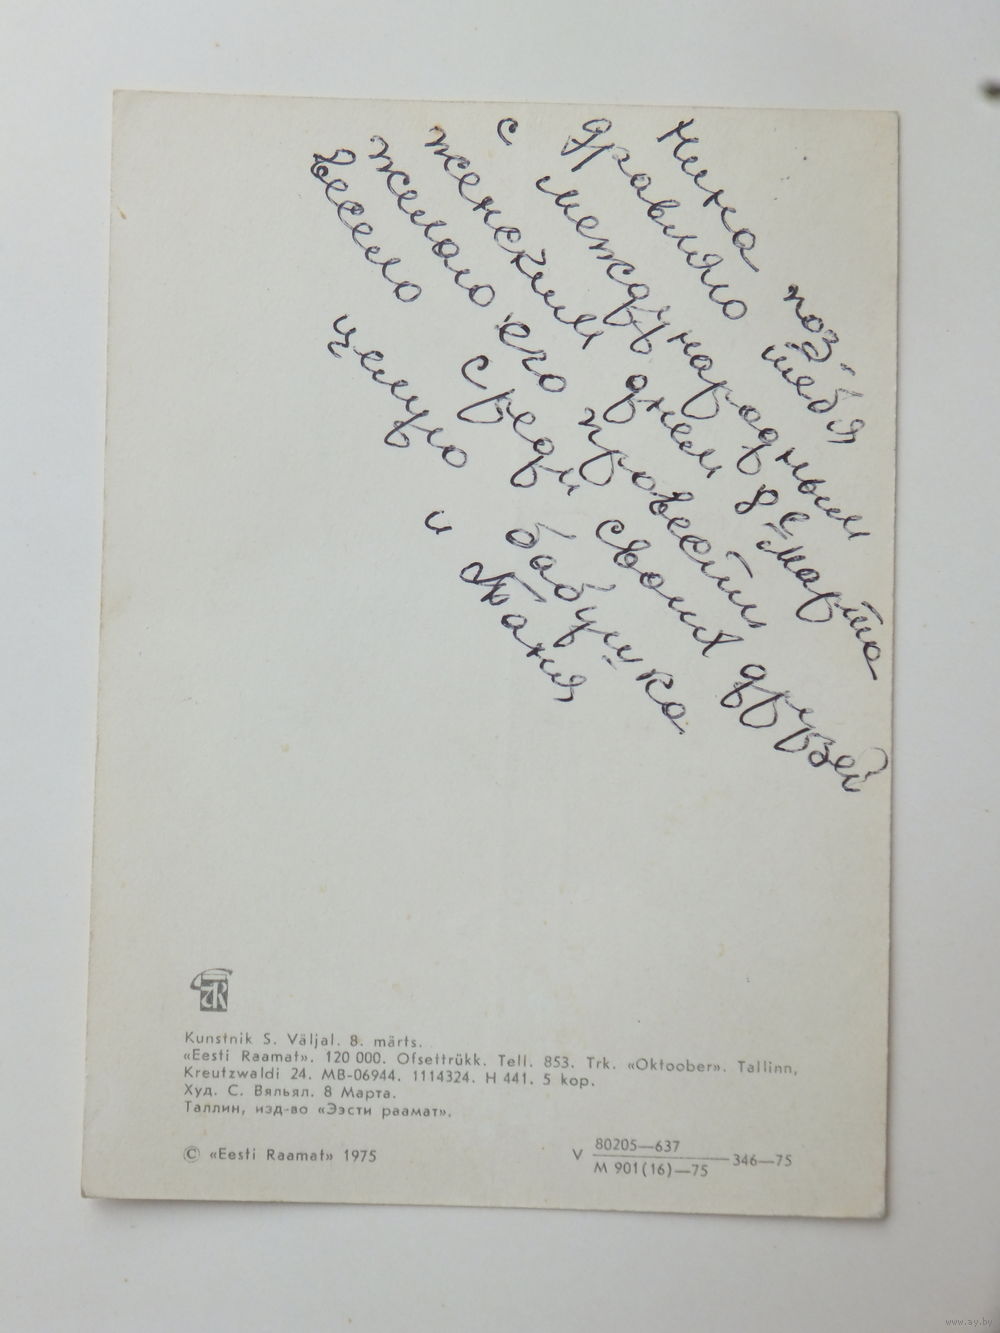 Нина поз-
дравляю тебя
с международным
женским днем 8е марта
желаю его провести
весело среди своих друзей
целую бабушка
и Таня
ER
Kunstnik S. Väljal. 8. märts.
«Eesti Raamat». 120 000. Ofsettrükk. Tell. 853. Trk. «Oktoober». Tallinn,
Kreutzwaldi 24. MB-06944. 1114324. H 441. 5 kop.
Худ. С. Вяльял. 8 Марта.
Таллин, изд-во «Ээсти раамат».
© «Eesti Raamat» 1975
V 80205—637
M 901(16)—75 —346—75
www.ay.by